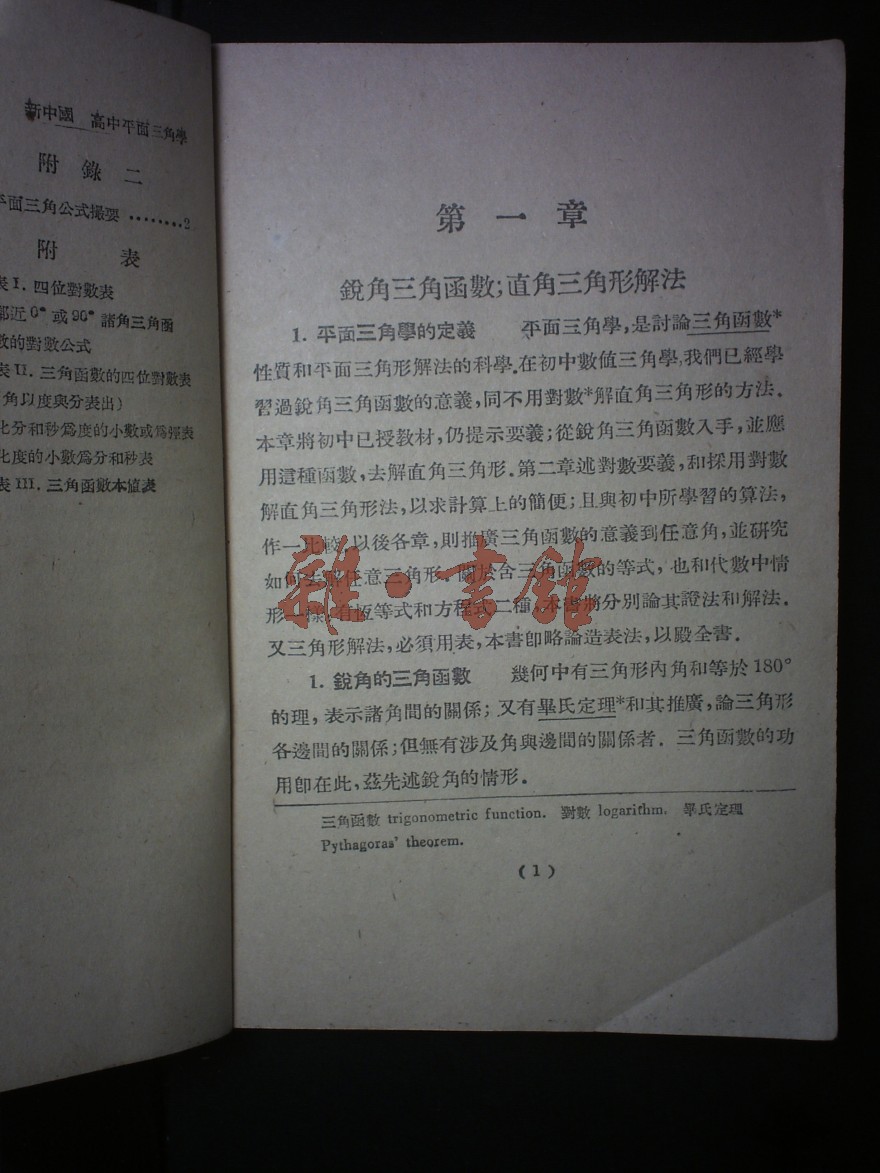 新中國 高中平面三角學
附錄二
平面三角公式撮要 ........2
附表
表I. 四位對數表
鄰近0°或90°諸角三角函
數的對數公式
表II. 三角函數的四位對數表
角以度與分表出)
化分和秒爲度的小數或爲弳表
化度的小數爲分和秒表
表III. 三角函數本值表
第一章
銳角三角函數;直角三角形解法
1. 平面三角學的定義 平面三角學,是討論三角函數*
性質和平面三角形解法的科學.在初中數值三角學,我們已經學
習過銳角三角函數的意義,同不用對數*解直角三角形的方法.
本章將初中已授教材,仍提示要義;從銳角三角函數入手,並應
用這種函數,去解直角三角形.第二章述對數要義,和採用對數
解直角三角形法,以求計算上的簡便;且與初中所學習的算法,
作一比較.以後各章,則推廣三角函數的意義到任意角,並研究
如何去解任意三角形.關於含三角函數的等式,也和代數中情
形一樣,有恆等式和方程式二種,本書將分別論其證法和解法.
又三角形解法,必須用表,本書卽略論造表法,以殿全書.
1. 銳角的三角函數 幾何中有三角形內角和等於180°
的理,表示諸角間的關係;又有畢氏定理*和其推廣,論三角形
各邊間的關係;但無有涉及角與邊間的關係者. 三角函數的功
用卽在此,茲先述銳角的情形.
三角函數 trigonometric function. 對數 logarithm. 畢氏定理
Pythagoras' theorem.
(1)
雜·書館